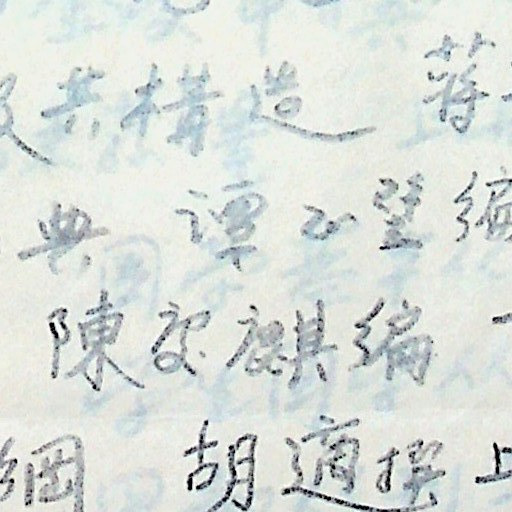 及其構造 蔣
典 譚正璧編
陳 麒編 一
綱 胡適撰 上